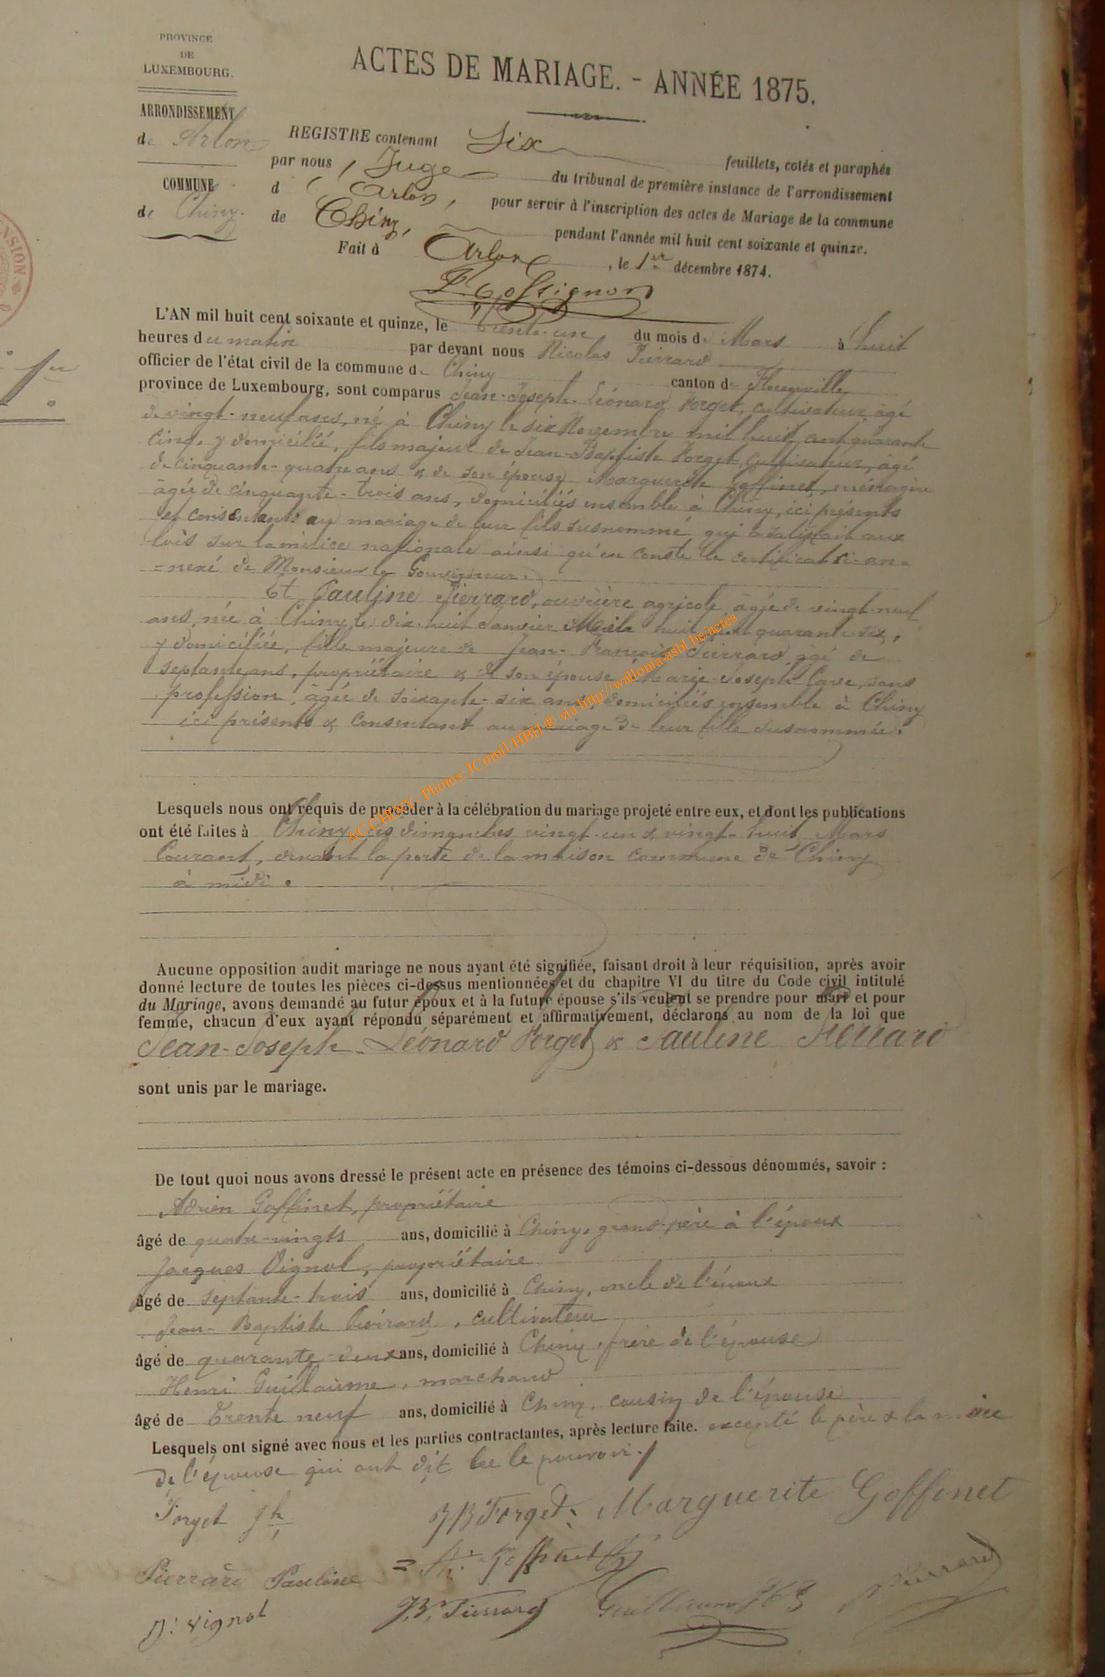 PROVINCE
DE
LUXEMBOURG.
ARRONDISSEMENT
de Arlon
COMMUNE
de Chiny.
ACTES DE MARIAGE. - ANNÉE 1875.
REGISTRE contenant Six feuillets, cotés et paraphés
par nous, Juge du tribunal de première instance de l'arrondissement
d'Arlon, pour servir à l'inscription des actes de Mariage de la commune
de Chiny, pendant l'année mil huit cent soixante et quinze.
Fait à Arlon, le 1er décembre 1874.
L'AN mil huit cent soixante et quinze, le trente-un du mois de Mars à huit
heures du matin par devant nous Nicolas Pierrard
officier de l'état civil de la commune de Chiny canton de Florenville,
province de Luxembourg, sont comparus Jean-Joseph-Léonard Forget, cultivateur, âgé
de vingt-neuf ans, né à Chiny le six Novembre mil huit cent quarante
cinq, y domicilié, fils majeur de Jean-Baptiste Forget, cultivateur, âgé
de cinquante-quatre ans & de son épouse Marguerite Goffinet, ménagère
âgée de cinquante-trois ans, domiciliés ensemble à Chiny, ici présents
et consentants au mariage de leur fils susnommé, qui a satisfait aux
lois sur la milice nationale ainsi qu'en conste le certificat ci-an-
=nexé de Monsieur le Gouverneur.
Et Pauline Pierrard, ouvrière agricole, âgée de vingt-neuf
ans, née à Chiny le dix-huit Janvier mil huit cent quarante six,
y domiciliée, fille majeure de Jean-François Pierrard, âgé de
septante ans, propriétaire & de son épouse Marie-Joseph Cave, sans
profession, âgée de soixante-six ans, domiciliés ensemble à Chiny
ici présents & consentant au mariage de leur fille susnommée.
ACCHINY - Photos JComil HBH © via http://wallonia-asbl.be/actes
Lesquels nous ont requis de procéder à la célébration du mariage projeté entre eux, et dont les publications
ont été faites à Chiny, les dimanches vingt-un & vingt-huit Mars
Courant, devant la porte de la maison commune de Chiny
à midi.
Aucune opposition audit mariage ne nous ayant été signifiée, faisant droit à leur réquisition, après avoir
donné lecture de toutes les pièces ci-dessus mentionnées et du chapitre VI du titre du Code civil intitulé
du Mariage, avons demandé au futur époux et à la future épouse s'ils veulent se prendre pour mari et pour
femme, chacun d'eux ayant répondu séparément et affirmativement, déclarons au nom de la loi que
Jean-Joseph-Léonard Forget & Pauline Pierrard
sont unis par le mariage.
De tout quoi nous avons dressé le présent acte en présence des témoins ci-dessous dénommés, savoir :
Adrien Goffinet, propriétaire
âgé de quatre-vingts ans, domicilié à Chiny, grand-père à l'époux
Jacques Vignol, propriétaire
âgé de septante-trois ans, domicilié à Chiny, oncle de l'époux
Jean-Baptiste Pierrard, cultivateur
âgé de quarante-deux ans, domicilié à Chiny, frère de l'épouse
Henri Guillaume, marchand
âgé de trente neuf ans, domicilié à Chiny, cousin de l'épouse
Lesquels ont signé avec nous et les parties contractantes, après lecture faite. excepté le père & la mère
de l'épouse qui ont dit ne le pouvoir.
Forget jh JB Forget Marguerite Goffinet
Pierrard Pauline
J: Vignol J.Bte Pierrard Guillaume N Pierrard